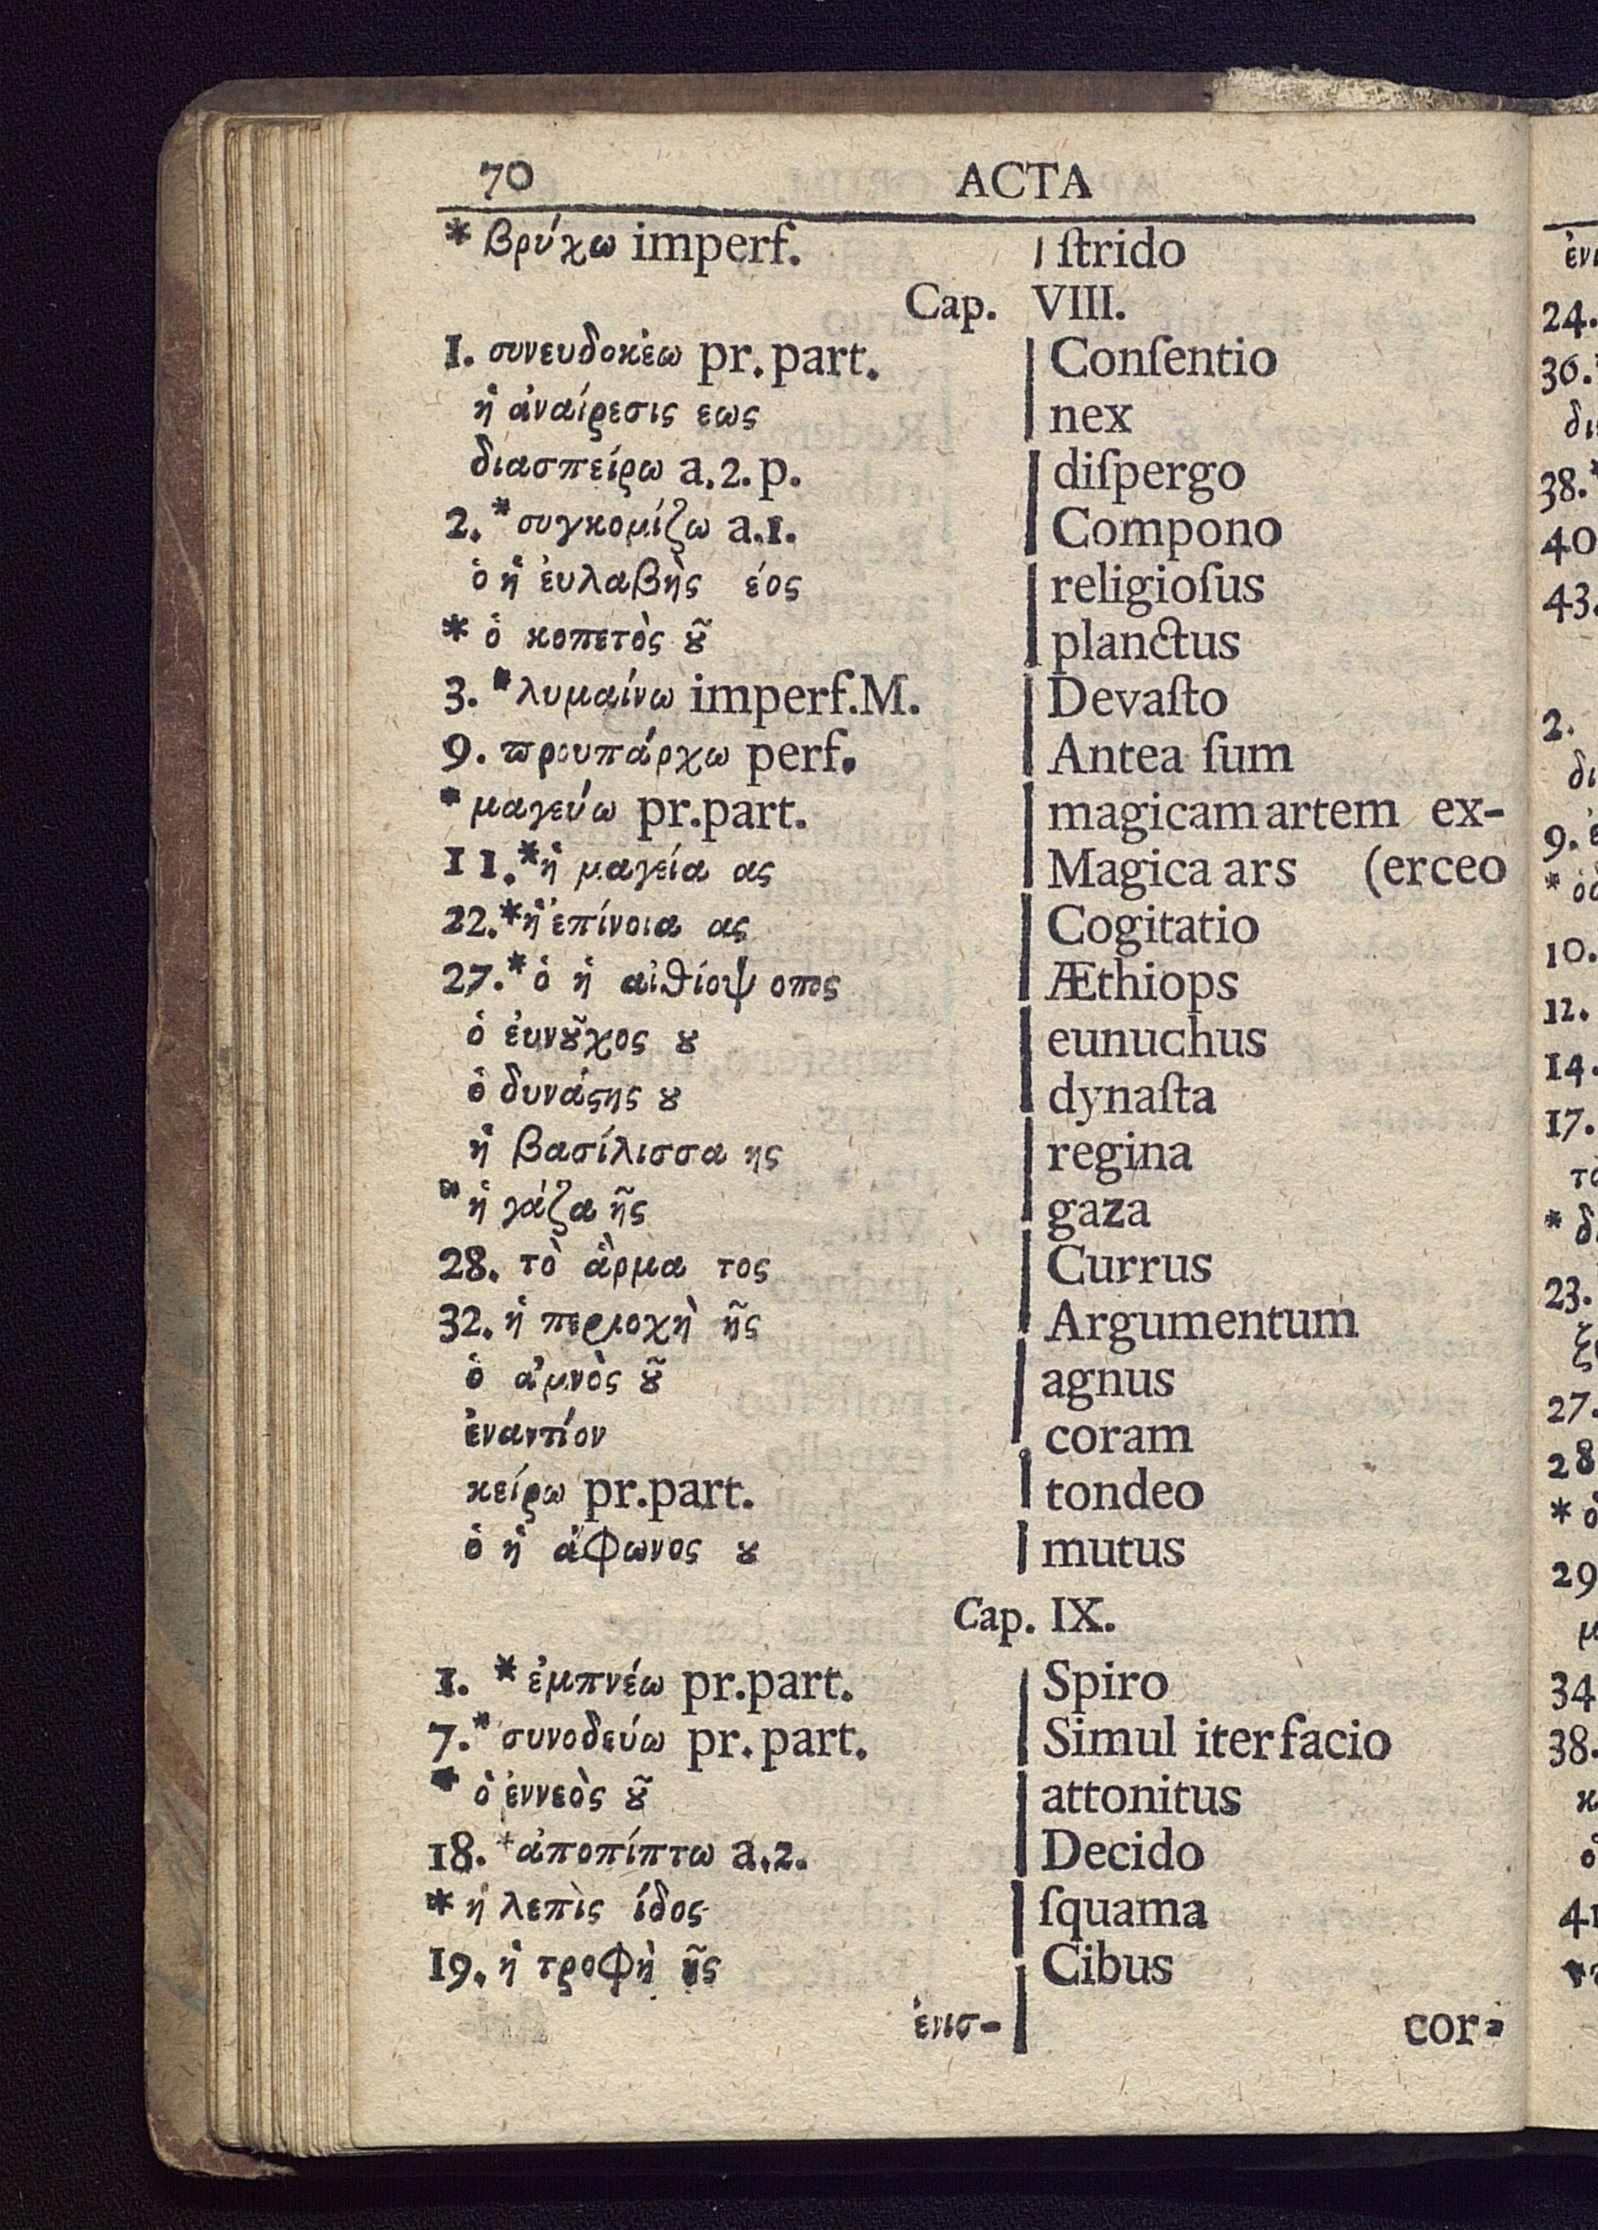 70 ACTA
* βρύχω imperf. ſtrido
Cap. VIII.
1. συνευδοκέω pr. part. Conſentio
ἡ ἀναίρεσις εως nex
διασπείρω a. 2. p. diſpergo
2. * συγκομίζω a. 1. Compono
ὁ ἡ ἐυλαβὴς έος religioſus
* ὁ κοπετὸς ȣ͂ planctus
3. * λυμαίνω imperf. M. Devaſto
9. ϖρουπάρχω perf. Antea ſum
* μαγεύω pr. part. magicam artem ex-
11. * ἡ μαγεία ας Magica ars (erceo
22. * ἡ ἐπίνοια ας Cogitatio
27. * ὁ ἡ αἰθίοψ οπος Æthiops
ὁ ἐυνȣ͂χος ȣ eunuchus
ὁ δυνάϛης ȣ dynaſta
ἡ βασίλισσα ης regina
* ἡ γάζα ῆς gaza
28. τὸ ἅρμα τος Currus
32. ἡ περιοχὴ ῆς Argumentum
ὁ ἀμνὸς ȣ͂ agnus
ἐναντίον coram
κείρω pr. part. tondeo
ὁ ἡ ἄφωνος ȣ mutus
Cap. IX.
1. * ἐμπνέω pr. part. Spiro
7. * συνοδεύω pr. part. Simul iter facio
* ὁ ἐννεὸς ȣ͂ attonitus
18. * ἀποπίπτω a. 2. Decido
* ἡ λεπὶς ίδος ſquama
19. ἡ τροφὴ ῆς Cibus
ἐνισ- cor-
24.
36.
38.
40
43.
2.
9.
10.
12.
14.
17.
23.
27.
28
29
34
38.
41